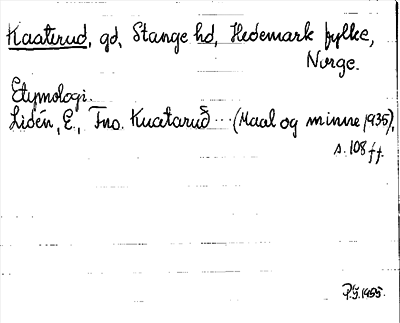 Kaaterud, gd, Stange hd, Hedemark fylke,
Norge.
Etymologi.
Lidén, E., Fno. Kuatarud ... (Maal og minne 1935),
s. 108 ff.
P.J. 1955.